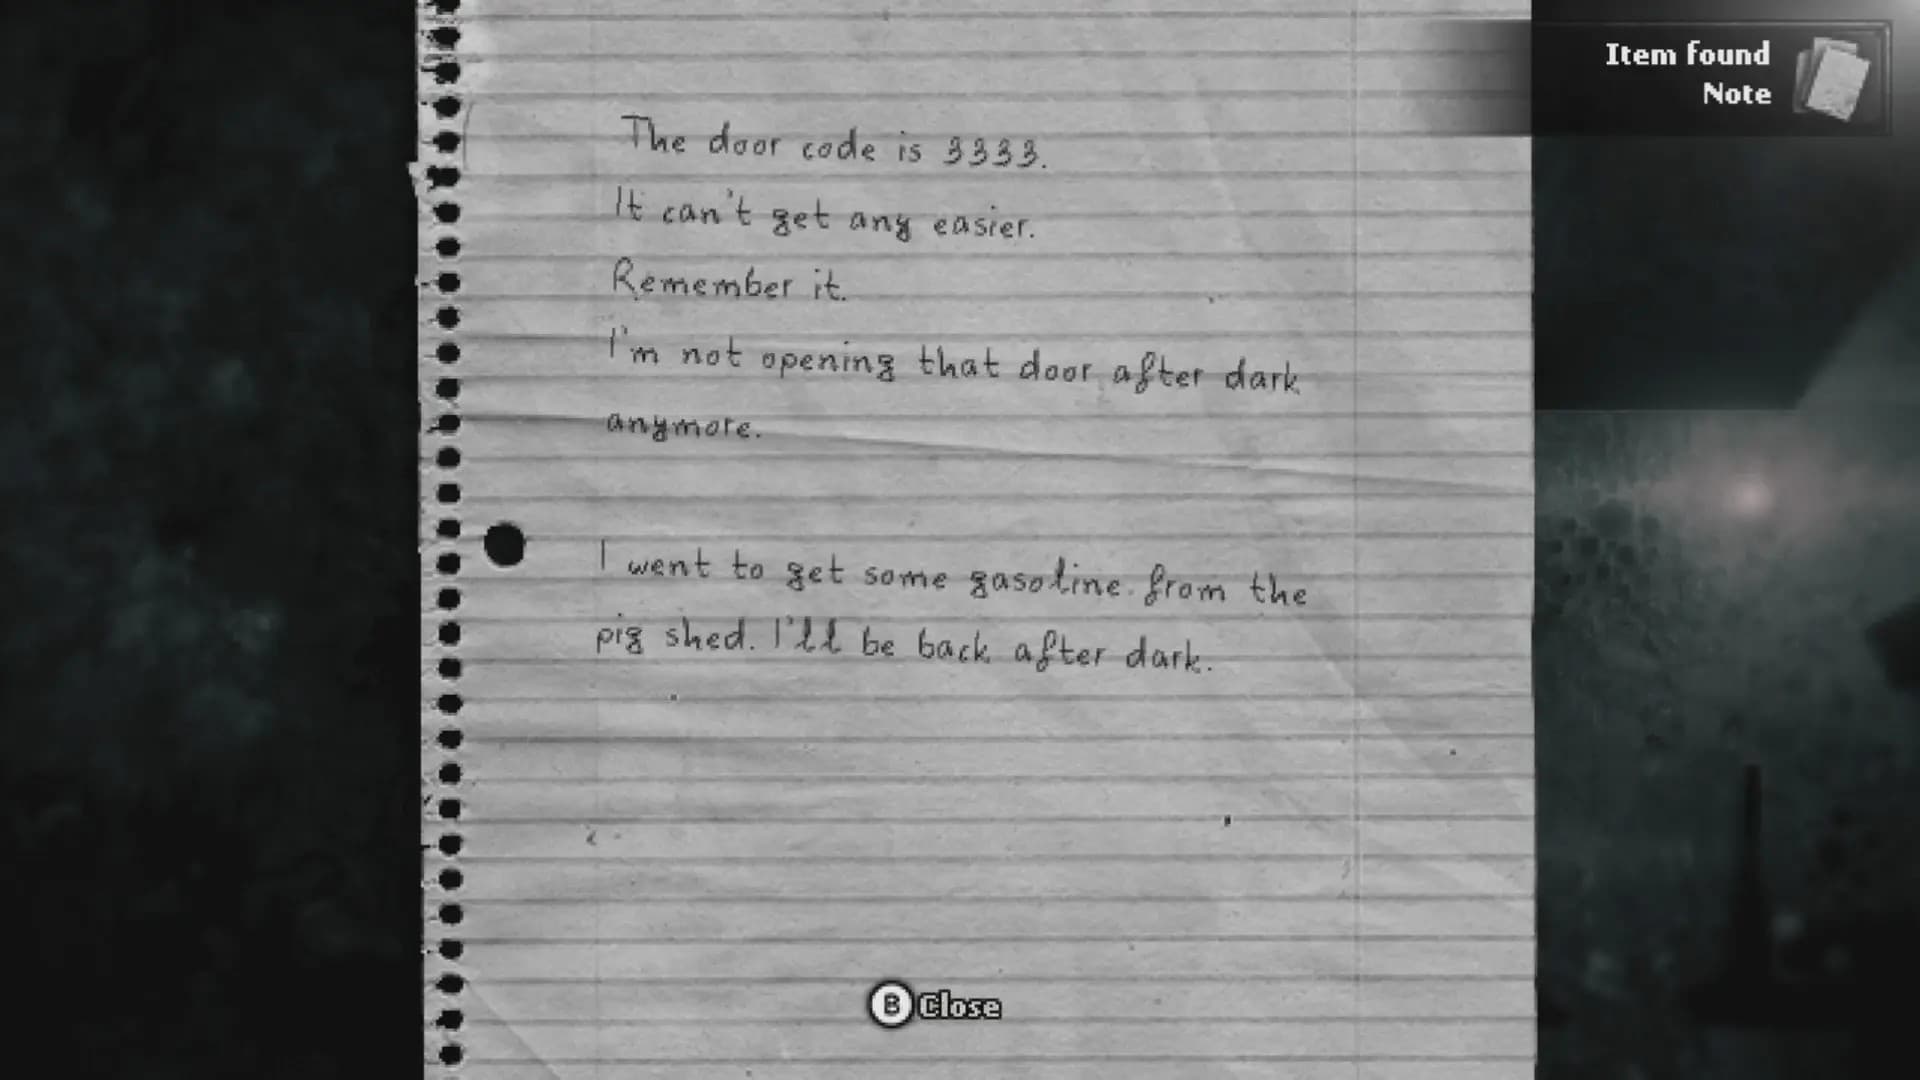 Item found
Note
The door code is 3333.
It can't get any easier.
Remember it.
I'm not opening that door after dark
anymore.
I went to get some gasoline from the
pig shed. I'll be back after dark.
B Close